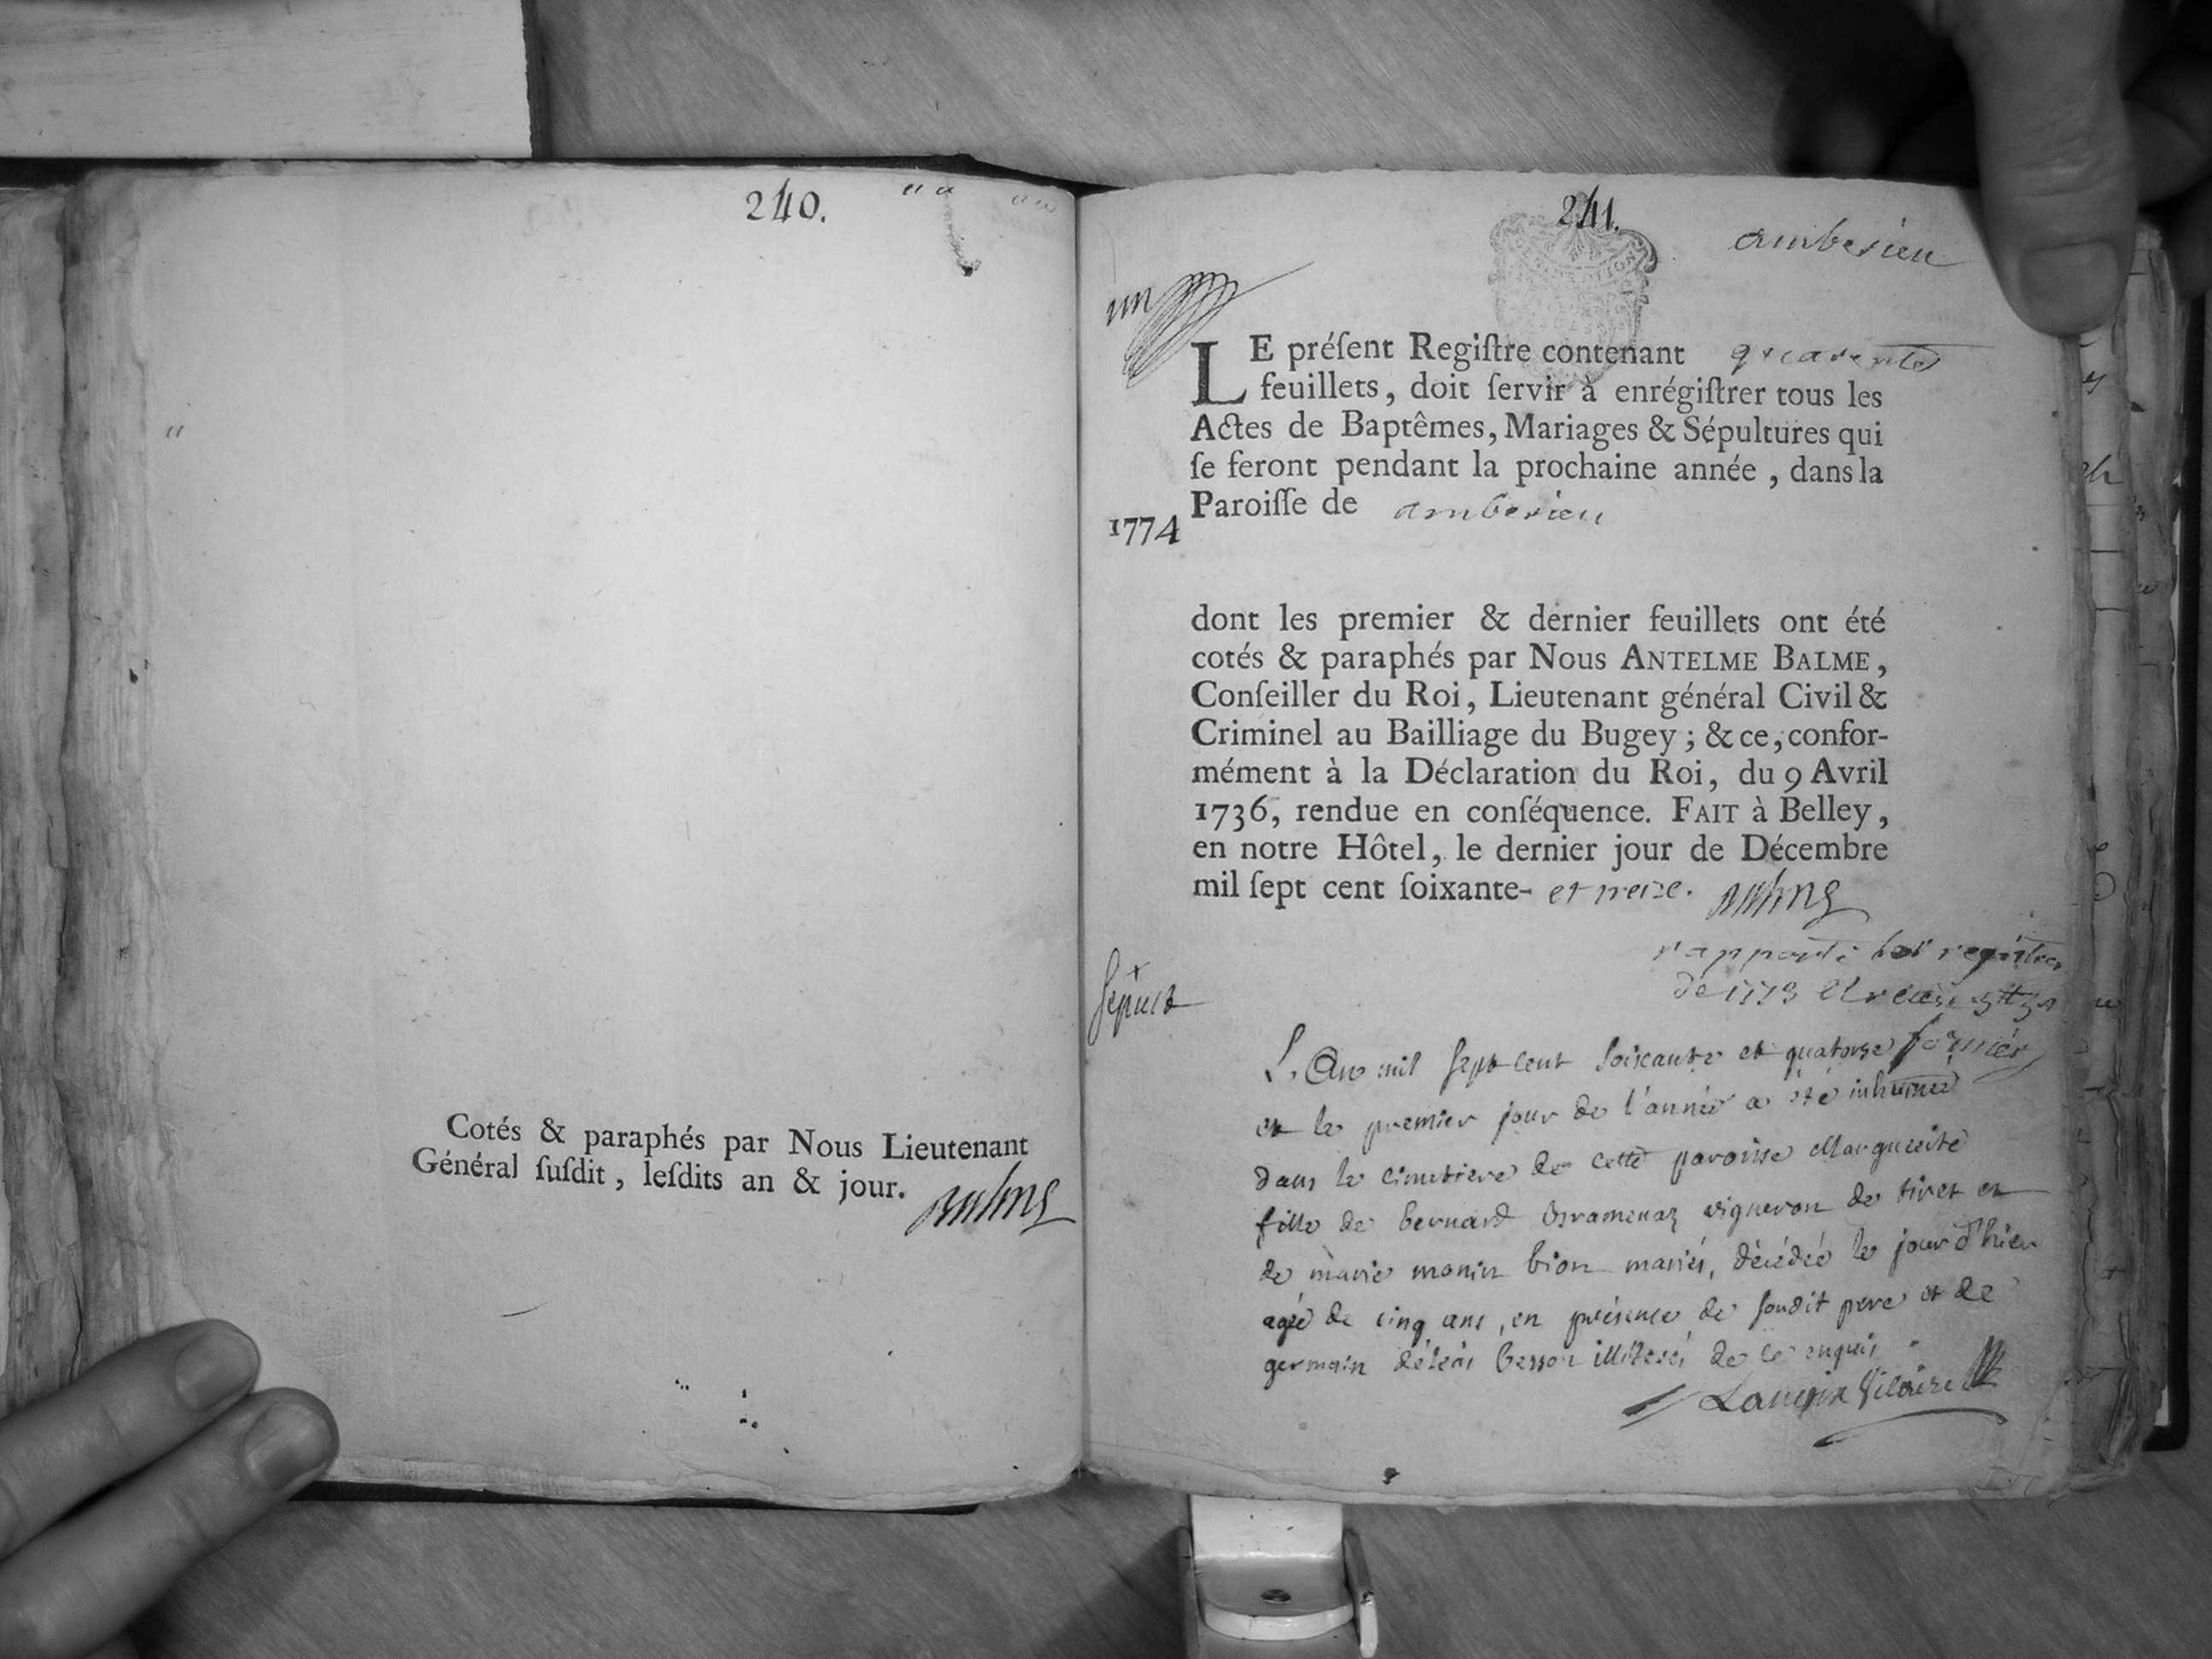 240.
Cotés & paraphés par Nous Lieutenant
Général ſuſdit, leſdits an & jour.
241.
amberieu
un
LE préſent Regiſtre contenant quarente
feuillets, doit ſervir à enrégiſtrer tous les
Actes de Baptêmes, Mariages & Sépultures qui
ſe feront pendant la prochaine année, dans la
Paroiſſe de amberieu
1774
dont les premier & dernier feuillets ont été
cotés & paraphés par Nous ANTELME BALME,
Conſeiller du Roi, Lieutenant général Civil &
Criminel au Bailliage du Bugey; & ce, confor-
mément à la Déclaration du Roi, du 9 Avril
1736, rendue en conſéquence. FAIT à Belley,
en notre Hôtel, le dernier jour de Décembre
mil ſept cent ſoixante- et treize.
rapporté
de 1773
L'An mil sept cent soixante et quatorze
et le premier jour de l'année a été inhumée
dans le cimetiere de cette paroisse Marguerite
fille de bernard vigneron de tiret et
de marie monin bion mariés, décédée le jour d'hier
agée de cinq ans, en présence de soudit pere et de
germain besson illiterés de ce enquis